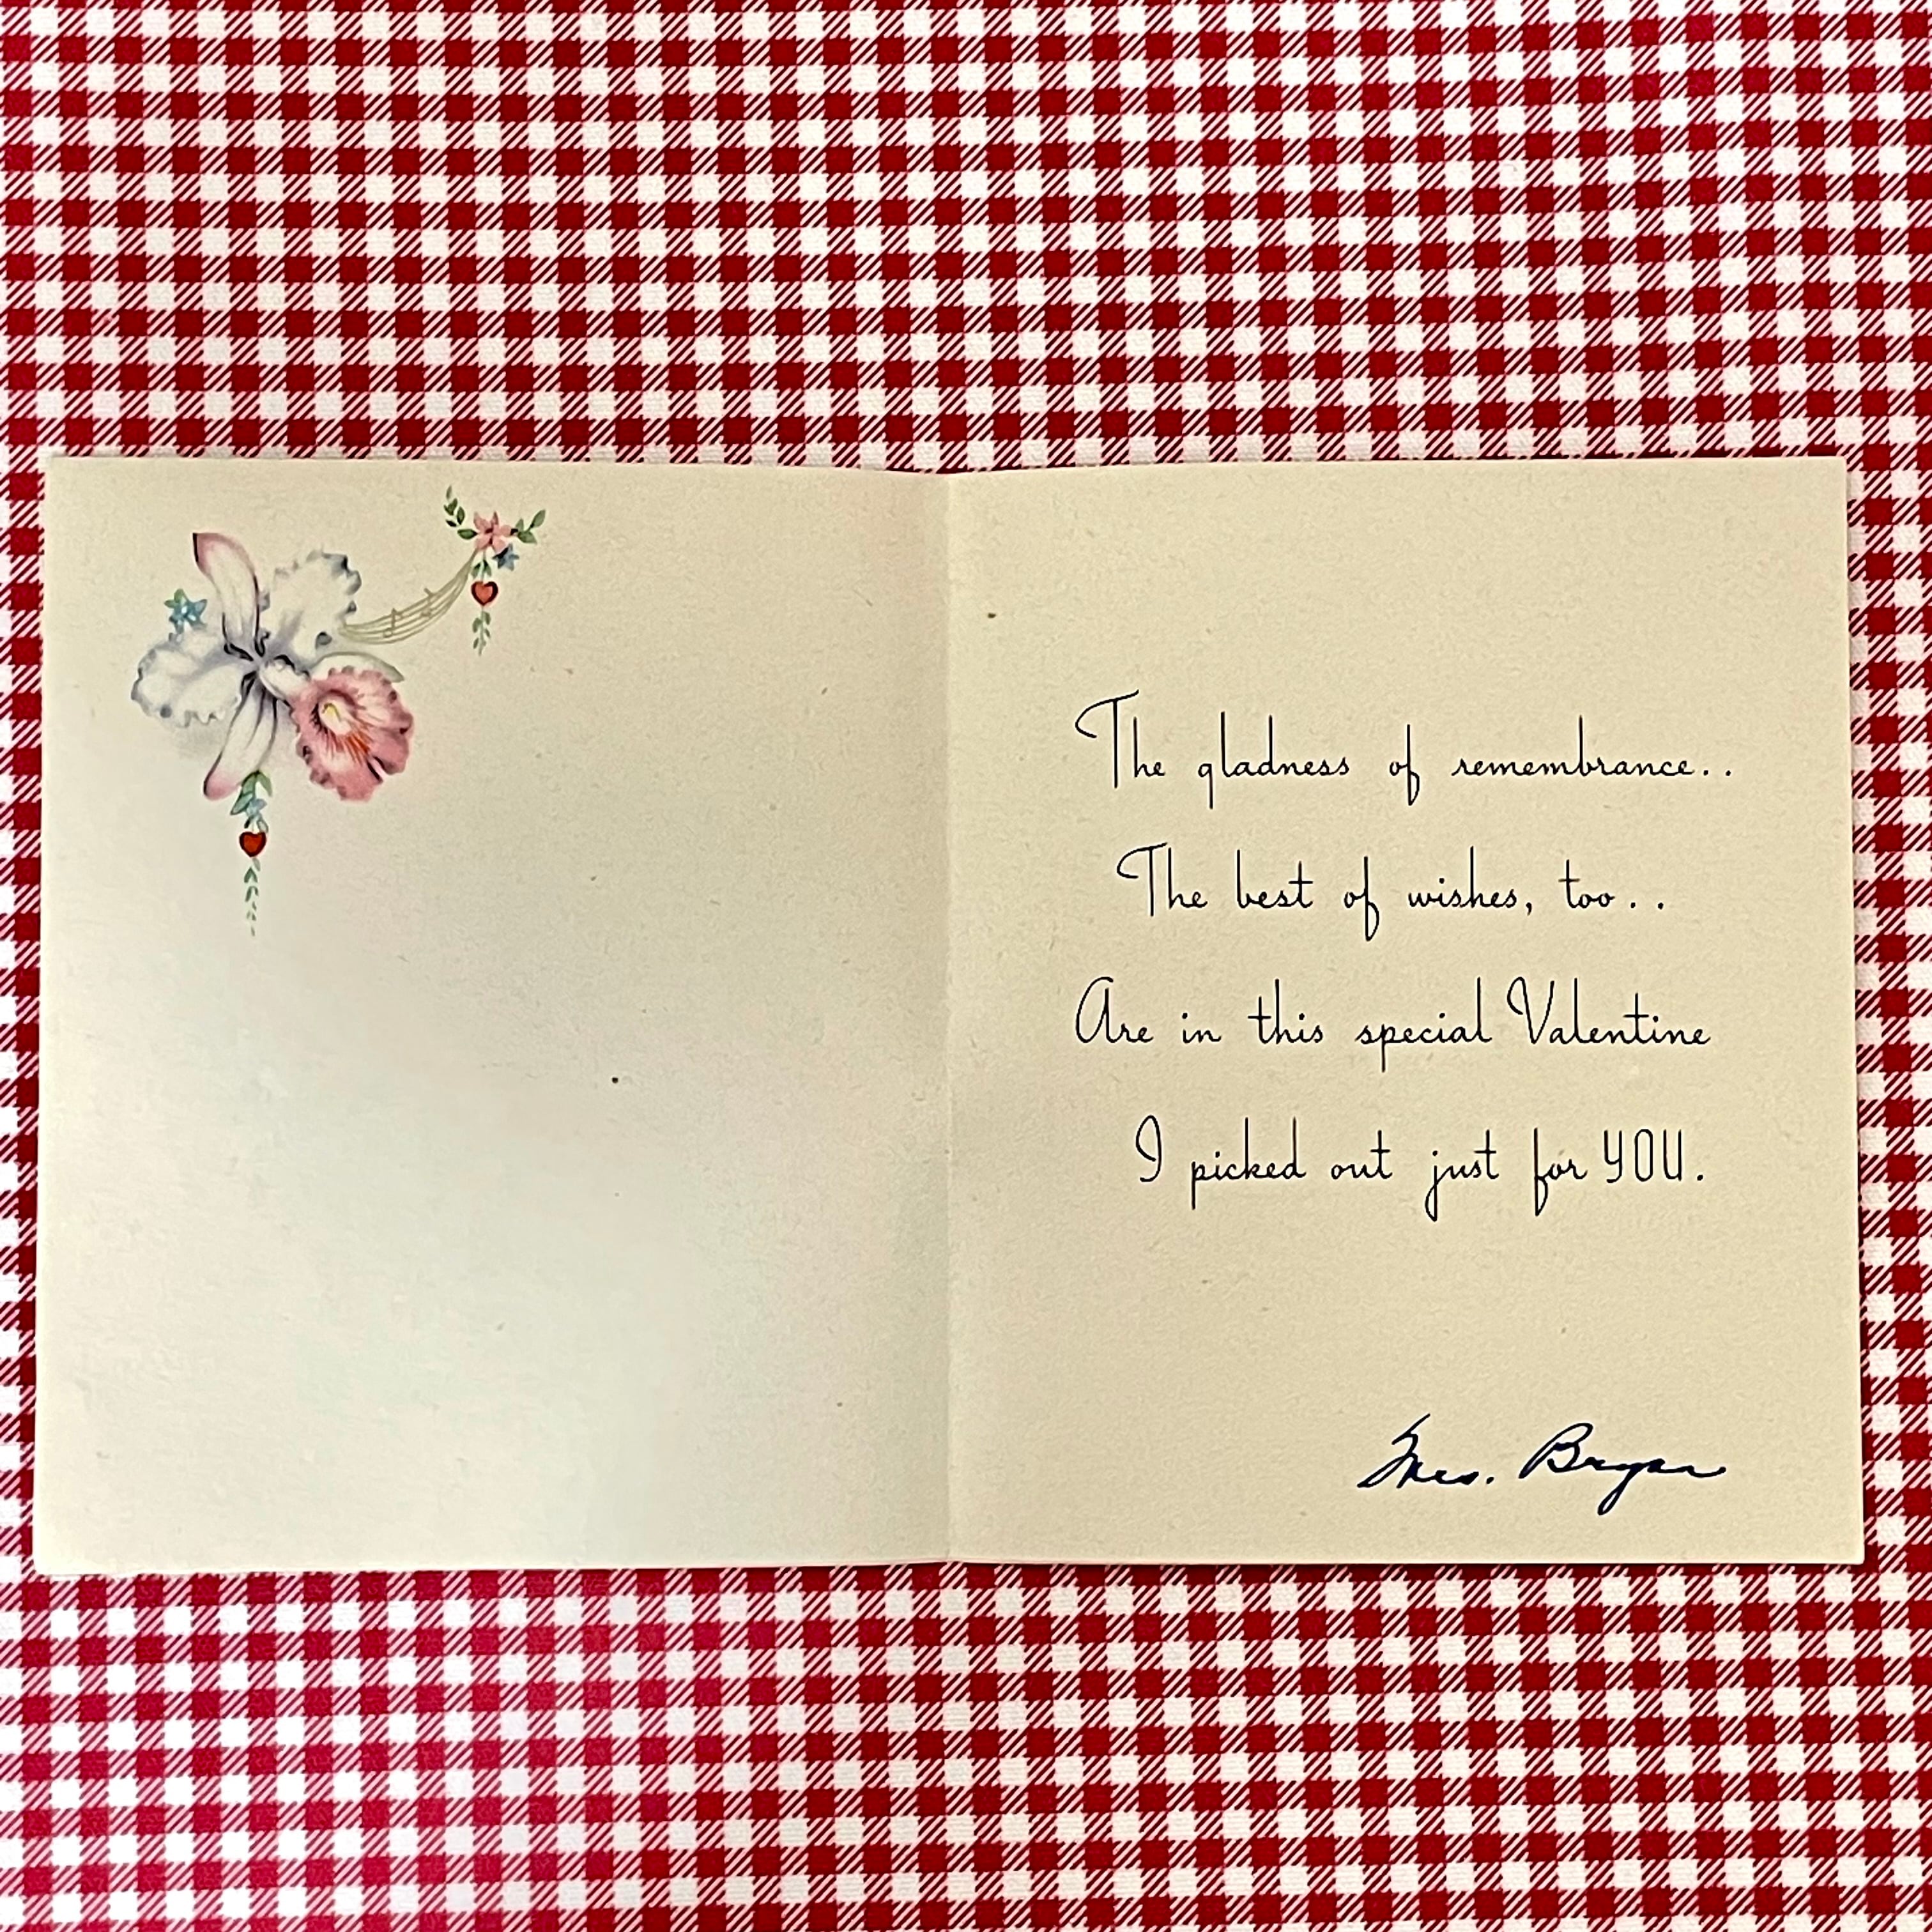 The gladness of remembrance..
The best of wishes, too..
Are in this special Valentine
I picked out just for YOU.
Mrs. Bryan